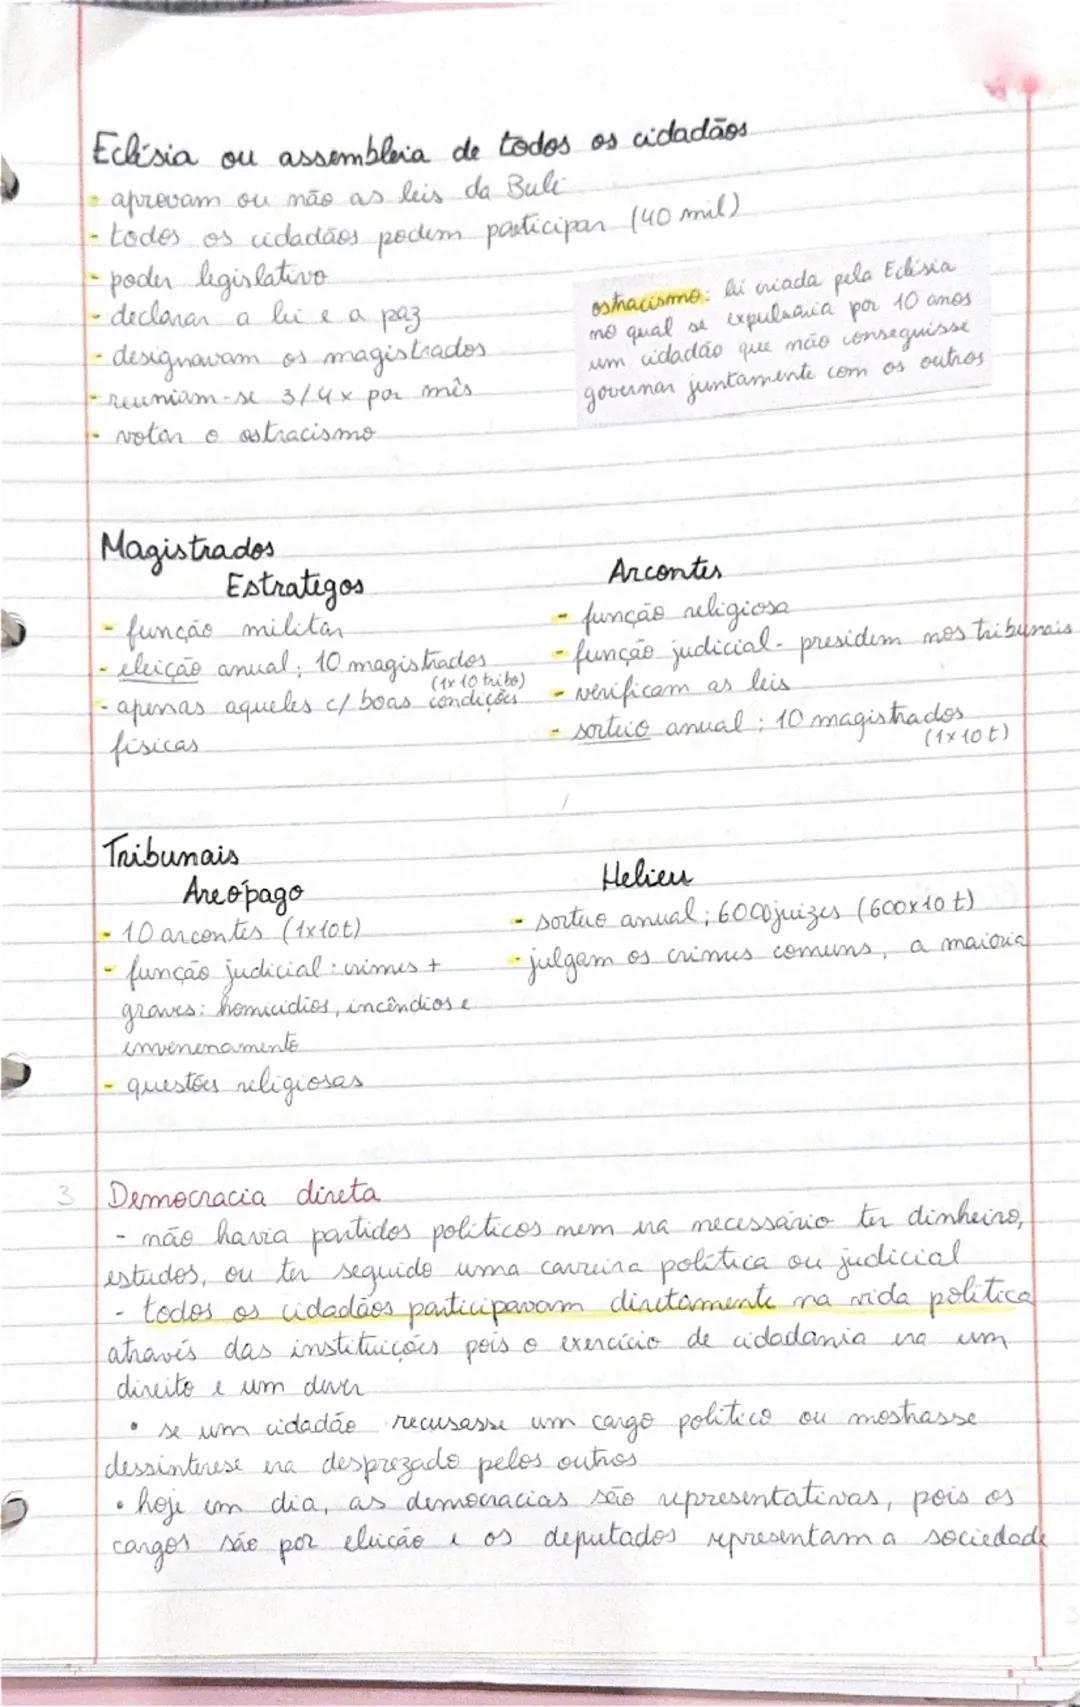 Eclésia ou assembleia de todos os cidadãos
- aprovam ou não as leis da Bulé
- todos os cidadãos podem participar (40 mil)
- poder legislativo
- declarar a lei e a paz
- designavam os magistrados
- reuniam-se 3/4x por mês
- votar o ostracismo
ostracismo: lei criada pela Eclésia
no qual se expulsaria por 10 anos
um cidadão que não conseguisse
governar juntamente com os outros
Magistrados
Estrategos
- função militar
- eleição anual; 10 magistrados
(1x10 tribo)
- apenas aqueles c/ boas condições
físicas
Arcontes
- função religiosa
- função judicial - presidem nos tribunais
- verificam as leis
- sorteio anual; 10 magistrados
(1x10t)
Tribunais
Areópago
- 10 arcontes (1x10t)
- função judicial: crimes +
graves: homicídios, incêndios e
envenenamento
- questões religiosas
Helieu
- sorteio anual; 6000 juízes (600x10 t)
- julgam os crimes comuns, a maioria
3 Democracia direta
- não havia partidos políticos nem era necessário ter dinheiro,
estudos, ou ter seguido uma carreira política ou judicial
- todos os cidadãos participavam diretamente na vida política
através das instituições pois o exercício de cidadania era um
direito e um dever
• se um cidadão recusasse um cargo político ou mostrasse
dessinterese era desprezado pelos outros
• hoje em dia, as democracias são representativas, pois os
cargos são por eleição e os deputados representam a sociedade